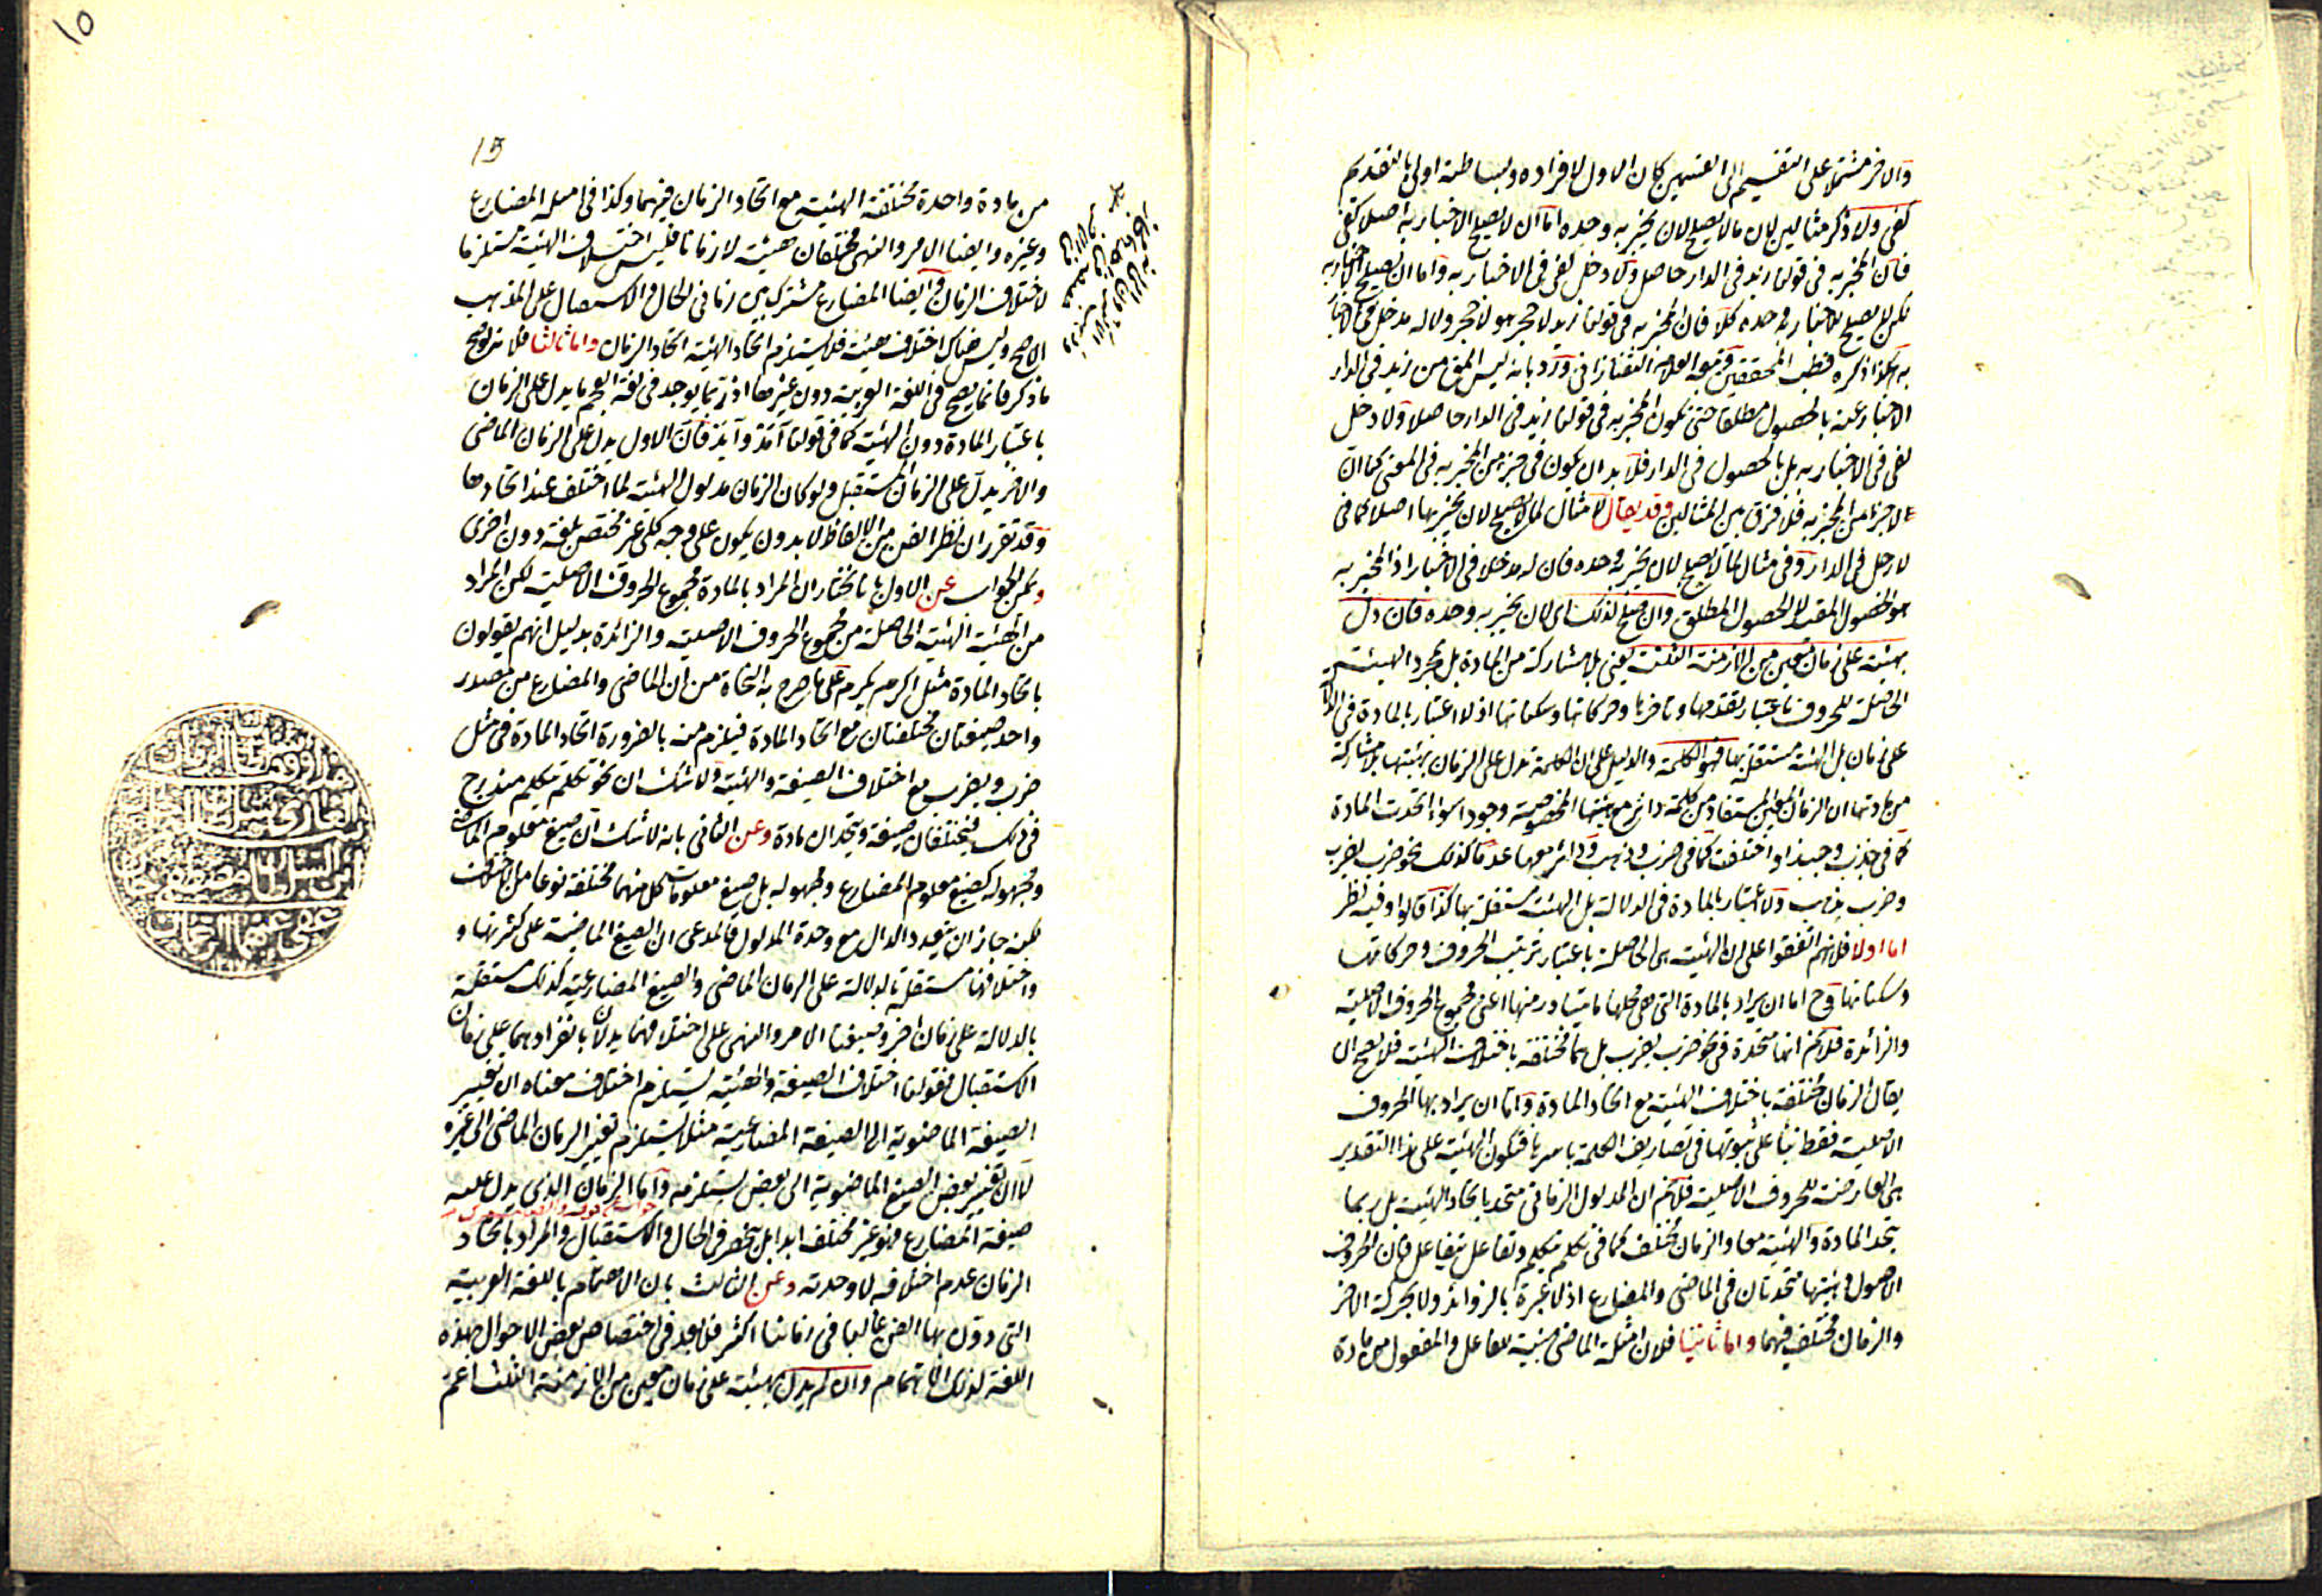 والاخر مشتملا على التقسيم الى القسمين كان الاول لافراده وبساطته اولى بالتقديم
كفى ولا ذكر مثالين لان مالا يصلح لان يخبر به وحده اما ان لا يصلح الاخبار به اصلا كفى
فان المخبر به فى قولنا زيد فى الدار حاصل ولا دخل لفى فى الاخبار به واما ان يصلح للاخبار به
لكن لا يصلح للاخبار به وحده كلا فان المخبر به فى قولنا زيد لا حجر هو لا حجر ولا له مدخل فى الاخبار
به هكذا ذكره قطب المحققين وتبعه العلامة التفتازانى ورد بانه ليس المق من زيد فى الدار
الاخبار عنه بالحصول مطلقا حتى يكون المخبر به فى قولنا زيد فى الدار حاصلا ولا دخل
لفى فى الاخبار به بل بالحصول فى الدار فلا بد ان يكون فى جزء من المخبر به فى المعنى كما ان
لا جزء من المخبر به فلا فرق بين المثالين وقد يقال لا مثال لما لا يصلح لان يخبر بها اصلا كما فى
لا رجل فى الدار وفى مثال لما لا يصلح لان يخبر به وحده فان له مدخلا فى الاخبار اذ المخبر به
هو الحصول المقيد لا الحصول المطلق وان صلح لذلك اى لان يخبر به وحده فان دل
بهيئته على زمان معين من الازمنة الثلثة يعنى بلا مشاركة من المادة بل بمجرد الهيئة
الحاصلة للحروف باعتبار تقدمها وتاخرها وحركاتها وسكناتها اذ لا اعتبار بالمادة فى الدلالة
على زمان بل الهيئة مستقلة بها فهو الكلمة والدليل على ان الكلمة تدل على الزمان بهيئتها بلا مشاركة
من مادتها ان الزمان المعين المستفاد من كلمة دائر مع هيئتها المخصوصة وجودا سواء اتحدت المادة
كما فى جذب وجبذ او اختلفت كما فى ضرب وذهب ودائر معها عدما كذلك نحو ضرب يضرب
وضرب يذهب ولا اعتبار بالمادة فى الدلالة بل الهيئة مستقلة بها كذا قالوا وفيه نظر
اما اولا فلانهم اتفقوا على ان الهيئة هى الحاصلة باعتبار ترتيب الحروف وحركاتها
وسكناتها وح اما ان يراد بالمادة التى هى محلها ما يتبادر منها اعنى مجموع الحروف الاصلية
والزائدة فلا نم انها متحدة فى نحو ضرب يضرب بل هما مختلفة باختلاف الهيئة فلا يصح ان
يقال الزمان مختلفة باختلاف الهيئة مع اتحاد المادة واما ان يراد بها الحروف
الاصلية فقط بناء على ثبوتها فى تصاريف الكلمة باسرها فتكون الهيئة على هذا التقدير
هى العارضة للحروف الاصلية فلا نم ان المدلول الزمانى متحد باتحاد الهيئة بل ربما
يتحد المادة والهيئة معا والزمان مختلف كما فى تكلم يتكلم وتفاعل يتفاعل فان الحروف
الاصول وهيئتها متحدتان فى الماضى والمضارع اذ لا عبرة بالزوائد ولا بحركة الاخر
والزمان مختلف فيهما واما ثانيا فلان امثلة الماضى مبنية للفاعل والمفعول من مادة
١٥
15
من مادة واحدة مختلفة الهيئة مع اتحاد الزمان فيهما وكذا فى امثلة المضارع
وغيره وايضا الامر والنهى مختلفان هيئة لا زمانا فليس اختلاف الهيئة مستلزما
لاختلاف الزمان وايضا المضارع مشترك بين زمانى الحال والاستقبال على المذهب
الاصح وليس هناك اختلاف هيئة فلا يستلزم اتحاد الهيئة اتحاد الزمان واما ثالثا فلانه لو صح
ما ذكر فانما يصح فى اللغة العربية دون غيرها اذ ربما يوجد فى لغة العجم ما يدل على الزمان
باعتبار المادة دون الهيئة كما فى قولنا آمد وآيد فان الاول يدل على الزمان الماضى
والاخر يدل على الزمان المستقبل ولو كان الزمان مدلول الهيئة لما اختلف عند اتحادها
وقد تقرر ان نظر الفن من الالفاظ لا بد ون يكون على وجه كلى غير مختص بلغة دون اخرى
ويمكن الجواب عن الاول بانا نختار ان المراد بالمادة مجموع الحروف الاصلية لكن المراد
من الهيئة الهيئة الحاصلة من مجموع الحروف الاصلية والزائدة بدليل انهم يقولون
باتحاد المادة مثل اكرم يكرم على ما صرح به النحاة من ان الماضى والمضارع من مصدر
واحد صيغتان مختلفتان مع اتحاد المادة فيلزم منه بالضرورة اتحاد المادة فى مثل
ضرب ويضرب مع اختلاف الصيغة والهيئة ولا شك ان نحو تكلم يتكلم مندرج
فى ذلك فيختلفان صيغة ويتحدان مادة وعن الثانى بانه لا شك ان صيغ معلوم الماضى
ومجهوله كصيغ معلوم المضارع ومجهوله بل صيغ معلومات كل منهما مختلفة نوعا من الاختلاف
لكنه جاز ان يتعدد الدال مع وحدة المدلول فالمدعى ان الصيغ الماضية على كثرتها و
واختلافها مستقلة بالدلالة على الزمان الماضى والصيغ المضارعية كذلك مستقلة
بالدلالة على زمان اخر وصيغتا الامر والنهى على اختلافهما يدلان بانفرادهما على زمان
الاستقبال فقولنا اختلاف الصيغة والهيئة يستلزم اختلاف معناه ان تغيير
الصيغة الماضوية الى الصيغة المضارعية مثلا يستلزم تغيير الزمان الماضى الى غيره
لا ان تغيير بعض الصيغ الماضوية الى بعض يستلزمه واما الزمان الذى يدل عليه
صيغة المضارع فهو غير مختلف ابدا بل منحصر فى الحال والاستقبال والمراد باتحاد
الزمان عدم اختلافه لا وحدته وعن الثالث بان الاهتمام باللغة العربية
التى دون بها الفن غالبا فى زماننا اكثر فلا بعد فى اختصاص بعض الاحوال بهذه
اللغة لذلك الاهتمام وان لم يدل بهيئته على زمان معين من الازمنة الثلث اعم